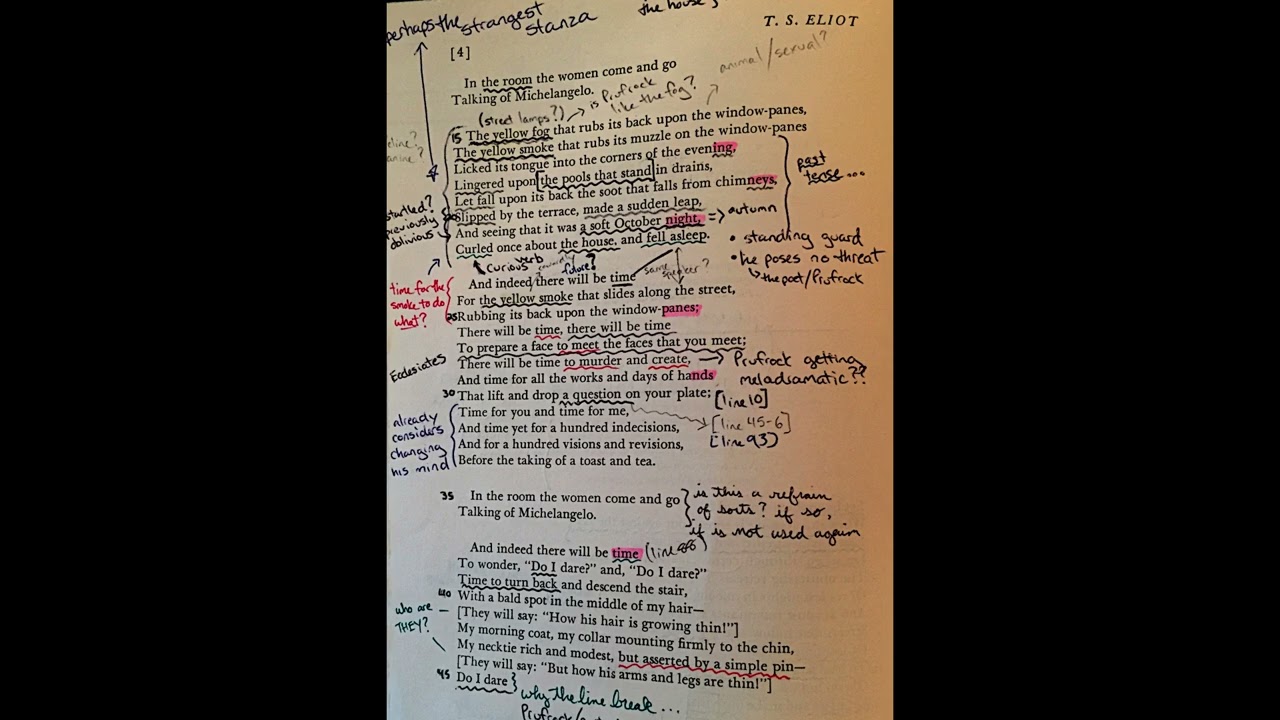 perhaps the strangest stanza
the house
T. S. ELIOT
[4]
In the room the women come and go
Talking of Michelangelo.
animal/sexual?
(street lamps?) → is Prufrock like the fog?
15 The yellow fog that rubs its back upon the window-panes,
The yellow smoke that rubs its muzzle on the window-panes
Licked its tongue into the corners of the evening,
Lingered upon [the pools that stand] in drains,
Let fall upon its back the soot that falls from chimneys,
Slipped by the terrace, made a sudden leap,
And seeing that it was a soft October night, => autumn
Curled once about the house, and fell asleep.
past tense...
startled? previously oblivious
• standing guard
• he poses no threat
↳ the poet/Prufrock
curious verb
future?
same speaker?
And indeed there will be time
For the yellow smoke that slides along the street,
25 Rubbing its back upon the window-panes;
There will be time, there will be time
To prepare a face to meet the faces that you meet;
There will be time to murder and create, → Prufrock getting
And time for all the works and days of hands meladramatic??
30 That lift and drop a question on your plate; [line 10]
Time for you and time for me,
And time yet for a hundred indecisions, [line 45-6]
And for a hundred visions and revisions, [line 93)
Before the taking of a toast and tea.
time for the smoke to do what?
Ecclesiates
already considers changing his mind
35 In the room the women come and go
Talking of Michelangelo.
is this a refrain
of sorts? if so,
if is not used again
And indeed there will be time
To wonder, “Do I dare?” and, “Do I dare?”
Time to turn back and descend the stair,
40 With a bald spot in the middle of my hair—
[They will say: “How his hair is growing thin!”]
My morning coat, my collar mounting firmly to the chin,
My necktie rich and modest, but asserted by a simple pin—
[They will say: “But how his arms and legs are thin!”]
45 Do I dare
who are THEY?
why the line break...